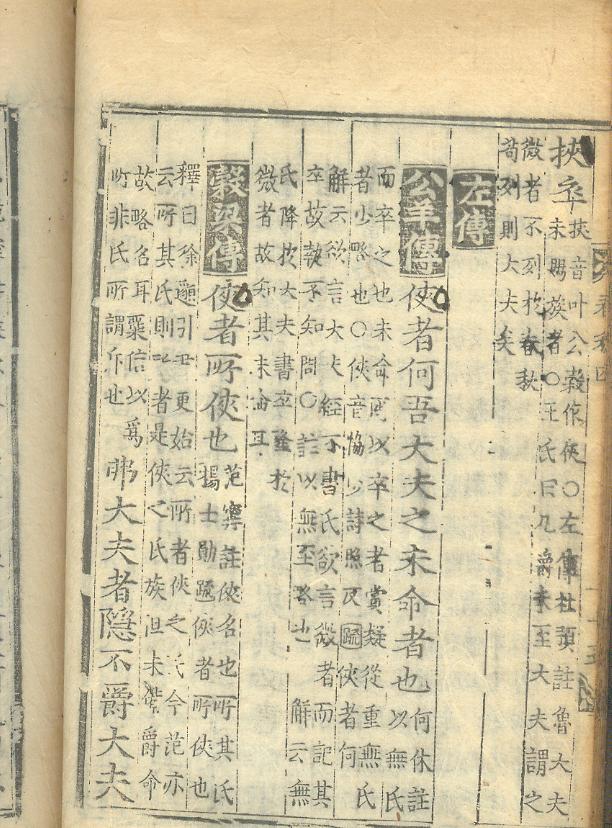 挾卒
挾音叶公穀作俠○左傳杜預註魯大夫
未賜族者○王氏曰凡爵未至大夫謂之
微者不列於春秋
苟列則大夫矣
左傳
公羊傳 俠者何吾大夫之未命者也
何休註
以無氏
而卒之也未命所以卒之者賞疑從重無氏
者少略也○俠音協少詩照反疏俠者何
解云欲言大夫經不書氏欲言微者而記其
卒故執不知問○註以無至略也 解云無
氏降於大夫書卒隆於
微者故知其未命耳
穀梁傳 俠者所俠也
范甯註俠名也所其氏
楊士勛疏俠者所俠也
釋曰徐邈引尹更始云所者俠之氏今范亦
云所其氏則所者是俠之氏族但未備爵命
故略名耳麋信以爲
所非氏所謂斥也
弗大夫者隱不爵大夫